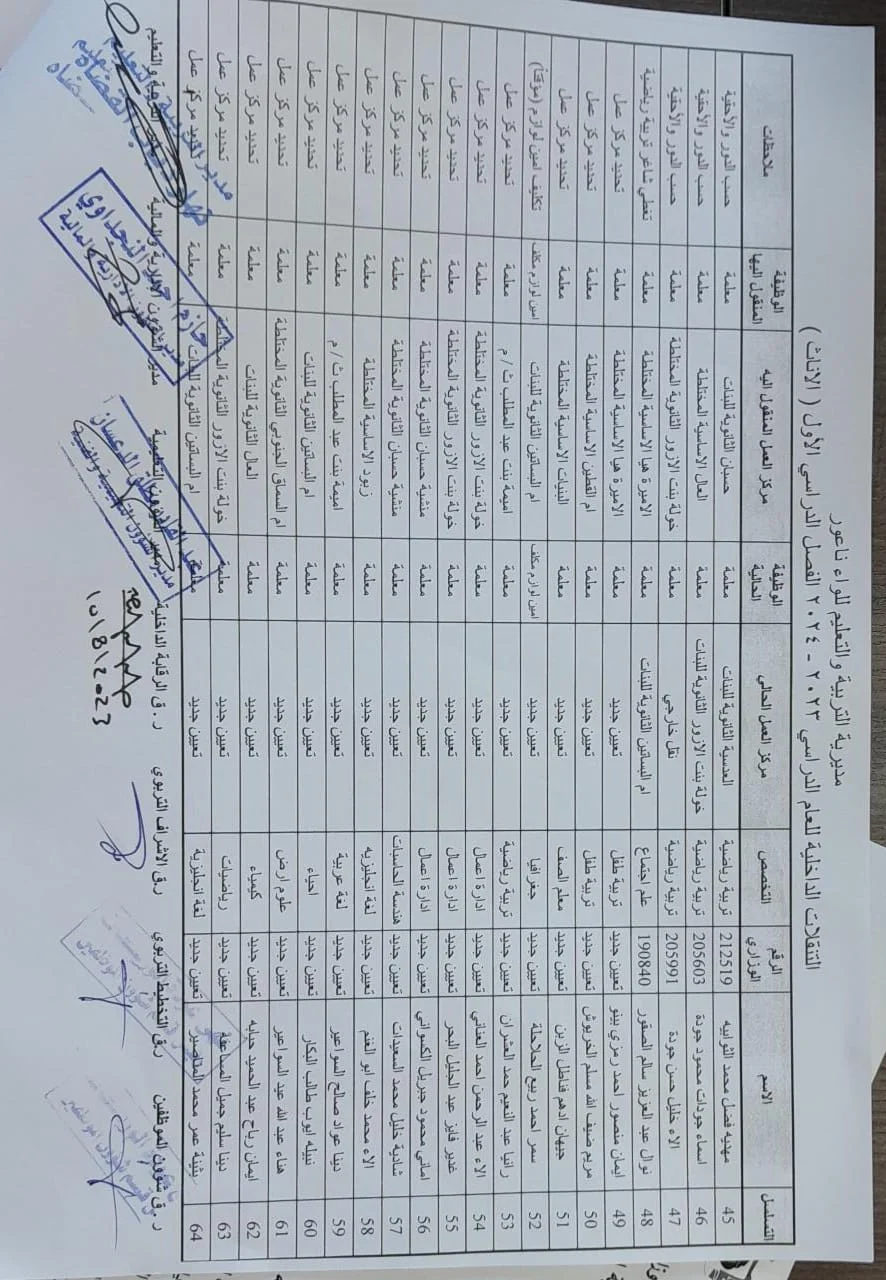 مديرية التربية والتعليم للواء ناعور
التنقلات الداخلية للعام الدراسي ٢٠٢٣ - ٢٠٢٤ الفصل الدراسي الأول ( الاناث )
التسلسل الاسم الرقم الوزاري التخصص مركز العمل الحالي الوظيفة الحالية مركز العمل المنقول اليه الوظيفة المنقول اليها ملاحظات
45 مهديه فضل محمد الثوابيه 212519 تربية رياضية العدسية الثانوية للبنات معلمة حسبان الثانوية للبنات معلمة حسب الدور والأحقية
46 اسماء جودات محمود جودة 205603 تربية رياضية خولة بنت الازور الثانوية للبنات معلمة العال الاساسية المختلطة معلمة حسب الدور والأحقية
47 الاء خليل حسن جودة 205991 تربية رياضية نقل خارجي معلمة خولة بنت الازور الثانوية المختلطة معلمة حسب الدور والأحقية
48 نوال عبد العزيز سالم الصقور 190840 علم اجتماع ام البساتين الثانوية للبنات معلمة الاميرة هيا الاساسية المختلطة معلمة تغطي شاغر تربية رياضية
49 ايمان منصور احمد رمزي بينو تعيين جديد تربية طفل تعيين جديد معلمة الاميرة هيا الاساسية المختلطة معلمة تحديد مركز عمل
50 مريم ضيف الله مسلم الخربوش تعيين جديد تربية طفل تعيين جديد معلمة ام القطين الاساسية المختلطة معلمة تحديد مركز عمل
51 جيهان ادهم فاضل الزبن تعيين جديد معلم الصف تعيين جديد معلمة البنيات الاساسية المختلطة معلمة تحديد مركز عمل
52 سمر احمد ربيع الحلاحلة تعيين جديد جغرافيا تعيين جديد امين لوازم مكلف ام البساتين الثانوية للبنات امين لوازم مكلف تكليف امين لوازم (مؤقتاً)
53 رانيا عبد النعيم حمد العشران تعيين جديد تربية رياضية تعيين جديد معلمة اميمة بنت عبد المطلب ث / م معلمة تحديد مركز عمل
54 الاء عبد الرحمن احمد العناني تعيين جديد ادارة اعمال تعيين جديد معلمة خولة بنت الازور الثانوية المختلطة معلمة تحديد مركز عمل
55 غدير فايز عبد الجليل البحر تعيين جديد ادارة اعمال تعيين جديد معلمة خولة بنت الازور الثانوية المختلطة معلمة تحديد مركز عمل
56 اماني محمود جبريل الكسواني تعيين جديد ادارة اعمال تعيين جديد معلمة منشية حسبان الثانوية المختلطة معلمة تحديد مركز عمل
57 شادية خليل محمد السعيدات تعيين جديد هندسة الحاسبات تعيين جديد معلمة منشية حسبان الثانوية المختلطة معلمة تحديد مركز عمل
58 الاء محمد خلف ابو الغنم تعيين جديد لغة انجليزيه تعيين جديد معلمة زبود الاساسية المختلطة معلمة تحديد مركز عمل
59 دينا عواد صالح السواعير تعيين جديد لغة عربية تعيين جديد معلمة اميمة بنت عبد المطلب ث / م معلمة تحديد مركز عمل
60 نبيله ايوب طالب البكار تعيين جديد احياء تعيين جديد معلمة ام البساتين الثانوية للبنات معلمة تحديد مركز عمل
61 هناء عبد الله عبد السواعير تعيين جديد علوم ارض تعيين جديد معلمة ام السماق الجنوبي الثانوية المختلطة معلمة تحديد مركز عمل
62 ايمان رباح عبد الحميد حبابه تعيين جديد كيمياء تعيين جديد معلمة العال الثانوية للبنات معلمة تحديد مركز عمل
63 دينا سليم جميل المساعفة تعيين جديد رياضيات تعيين جديد معلمة خولة بنت الازور الثانوية المختلطة معلمة تحديد مركز عمل
64 بثينة عمر محمد المناصير تعيين جديد لغة انجليزية تعيين جديد معلمة ام البساتين الثانوية للبنات معلمة تحديد مركز عمل
ر . ق شؤون الموظفين ر.ق التخطيط التربوي ر.ق الاشراف التربوي ر . ق الرقابة الداخلية مدير الشؤون التعليمية مدير الشؤون الادارية والمالية مدير التربية والتعليم
10/8/2023